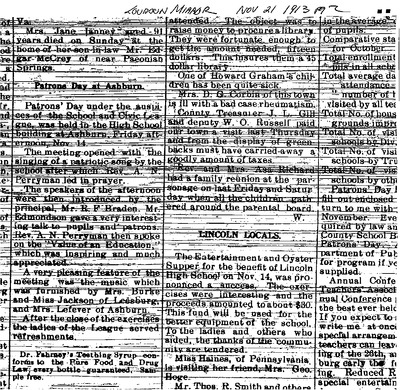 LOUDOUN MIRROR NOV 21 1913 P 2
Va.
Mrs. Jane Janney aged 91
years died on Sunday at the
home of her son-in-law Mr. Ed-
gar McCrey of near Paeonian
Springs.
Patrons Day at Ashburn.
Patrons' Day under the auspi-
ces of the School and Civic Lea-
gue, was held in the High School
building at Ashburn, Friday afte-
rnoon, Nov. 14.
The meeting opened with the
singing of a patriotic song by the
school after which Rev. A. N.
Perryman led in prayer.
The speakers of the afternoon
were then introduced by the
principal, Mr. R. F. Braden. Mr.
Edmondson gave a very interest-
ing talk to pupils and patrons.
Rev. A. N. Perryman then spoke
on the "Value of an Education,"
which was inspiring and much
appreciated.
A very pleasing feature of the
meeting was the music which
was furnished by Mrs. Burke
and Miss Jackson of Leesburg,
and Mrs. Lefever of Ashburn.
At the close of the exercises
the ladies of the League served
refreshments.
Dr. Fahrney's Teething Syrup con-
fords to the Pure Food and Drug
Law; every bottle guaranteed. Sam-
ple free.
attended. The object was to
raise money to procure a library.
They were fortunate enough to
get the amount needed, fifteen
dollars. This insures them a 45
dollar library.
One of Howard Graham's chil-
dren has been quite sick.
Mrs. D. G. Corbin of this town
is ill with a bad case rheumatism.
County Treasurer J. L. Gill
and deputy W. O. Russell paid
our town a visit last Thursday
and from the display of green
backs must have carried away a
goodly amount of taxes
Rev. and Mrs. Asa Richard
had a family reunion at the par-
sonage on last Friday and Satur
day when all the children gath-
ered around the parental board.
W.
LINCOLN LOCALS.
The Eatertainment and Oyster
Supper for the benefit of Lincoln
High School on Nov. 14, was pro-
nounced a success. The exer-
cises were interesting and the
proceeds amounted to about $30.
This fund will be used for the
better equipment of the school.
To the ladies and others who
aided, the thanks of the commu-
nity are tendered.
Miss Haines, of Pennsylvania
is visiting her friend, Mrs. Geo.
Hoge.
Mr. Thos. R. Smith and others
in the average
of pupils.
Comparative sta
for October.
Total enrollment
in schools
Total average da
attendance
number of t
visited by all tea
Total No. of hous
grounds impro
Total No. of visits
schools by Div.
Total No. of visits
schools by Tru
Total No. of visits
schools by othe
Patrons' Day
fill out enclosed
turn to me with
November. Eve
quired by law an
County School B
Patrons' Day
partment of Pub
for program if yo
supplied.
Annual Confe
Teachers' Assoc
nual Conference
the best ever held
If you expect to
write me at once
special arrangem
teachers can leav
ing of the 26th, a
burg early the f
ing. Reduced R
special entertain